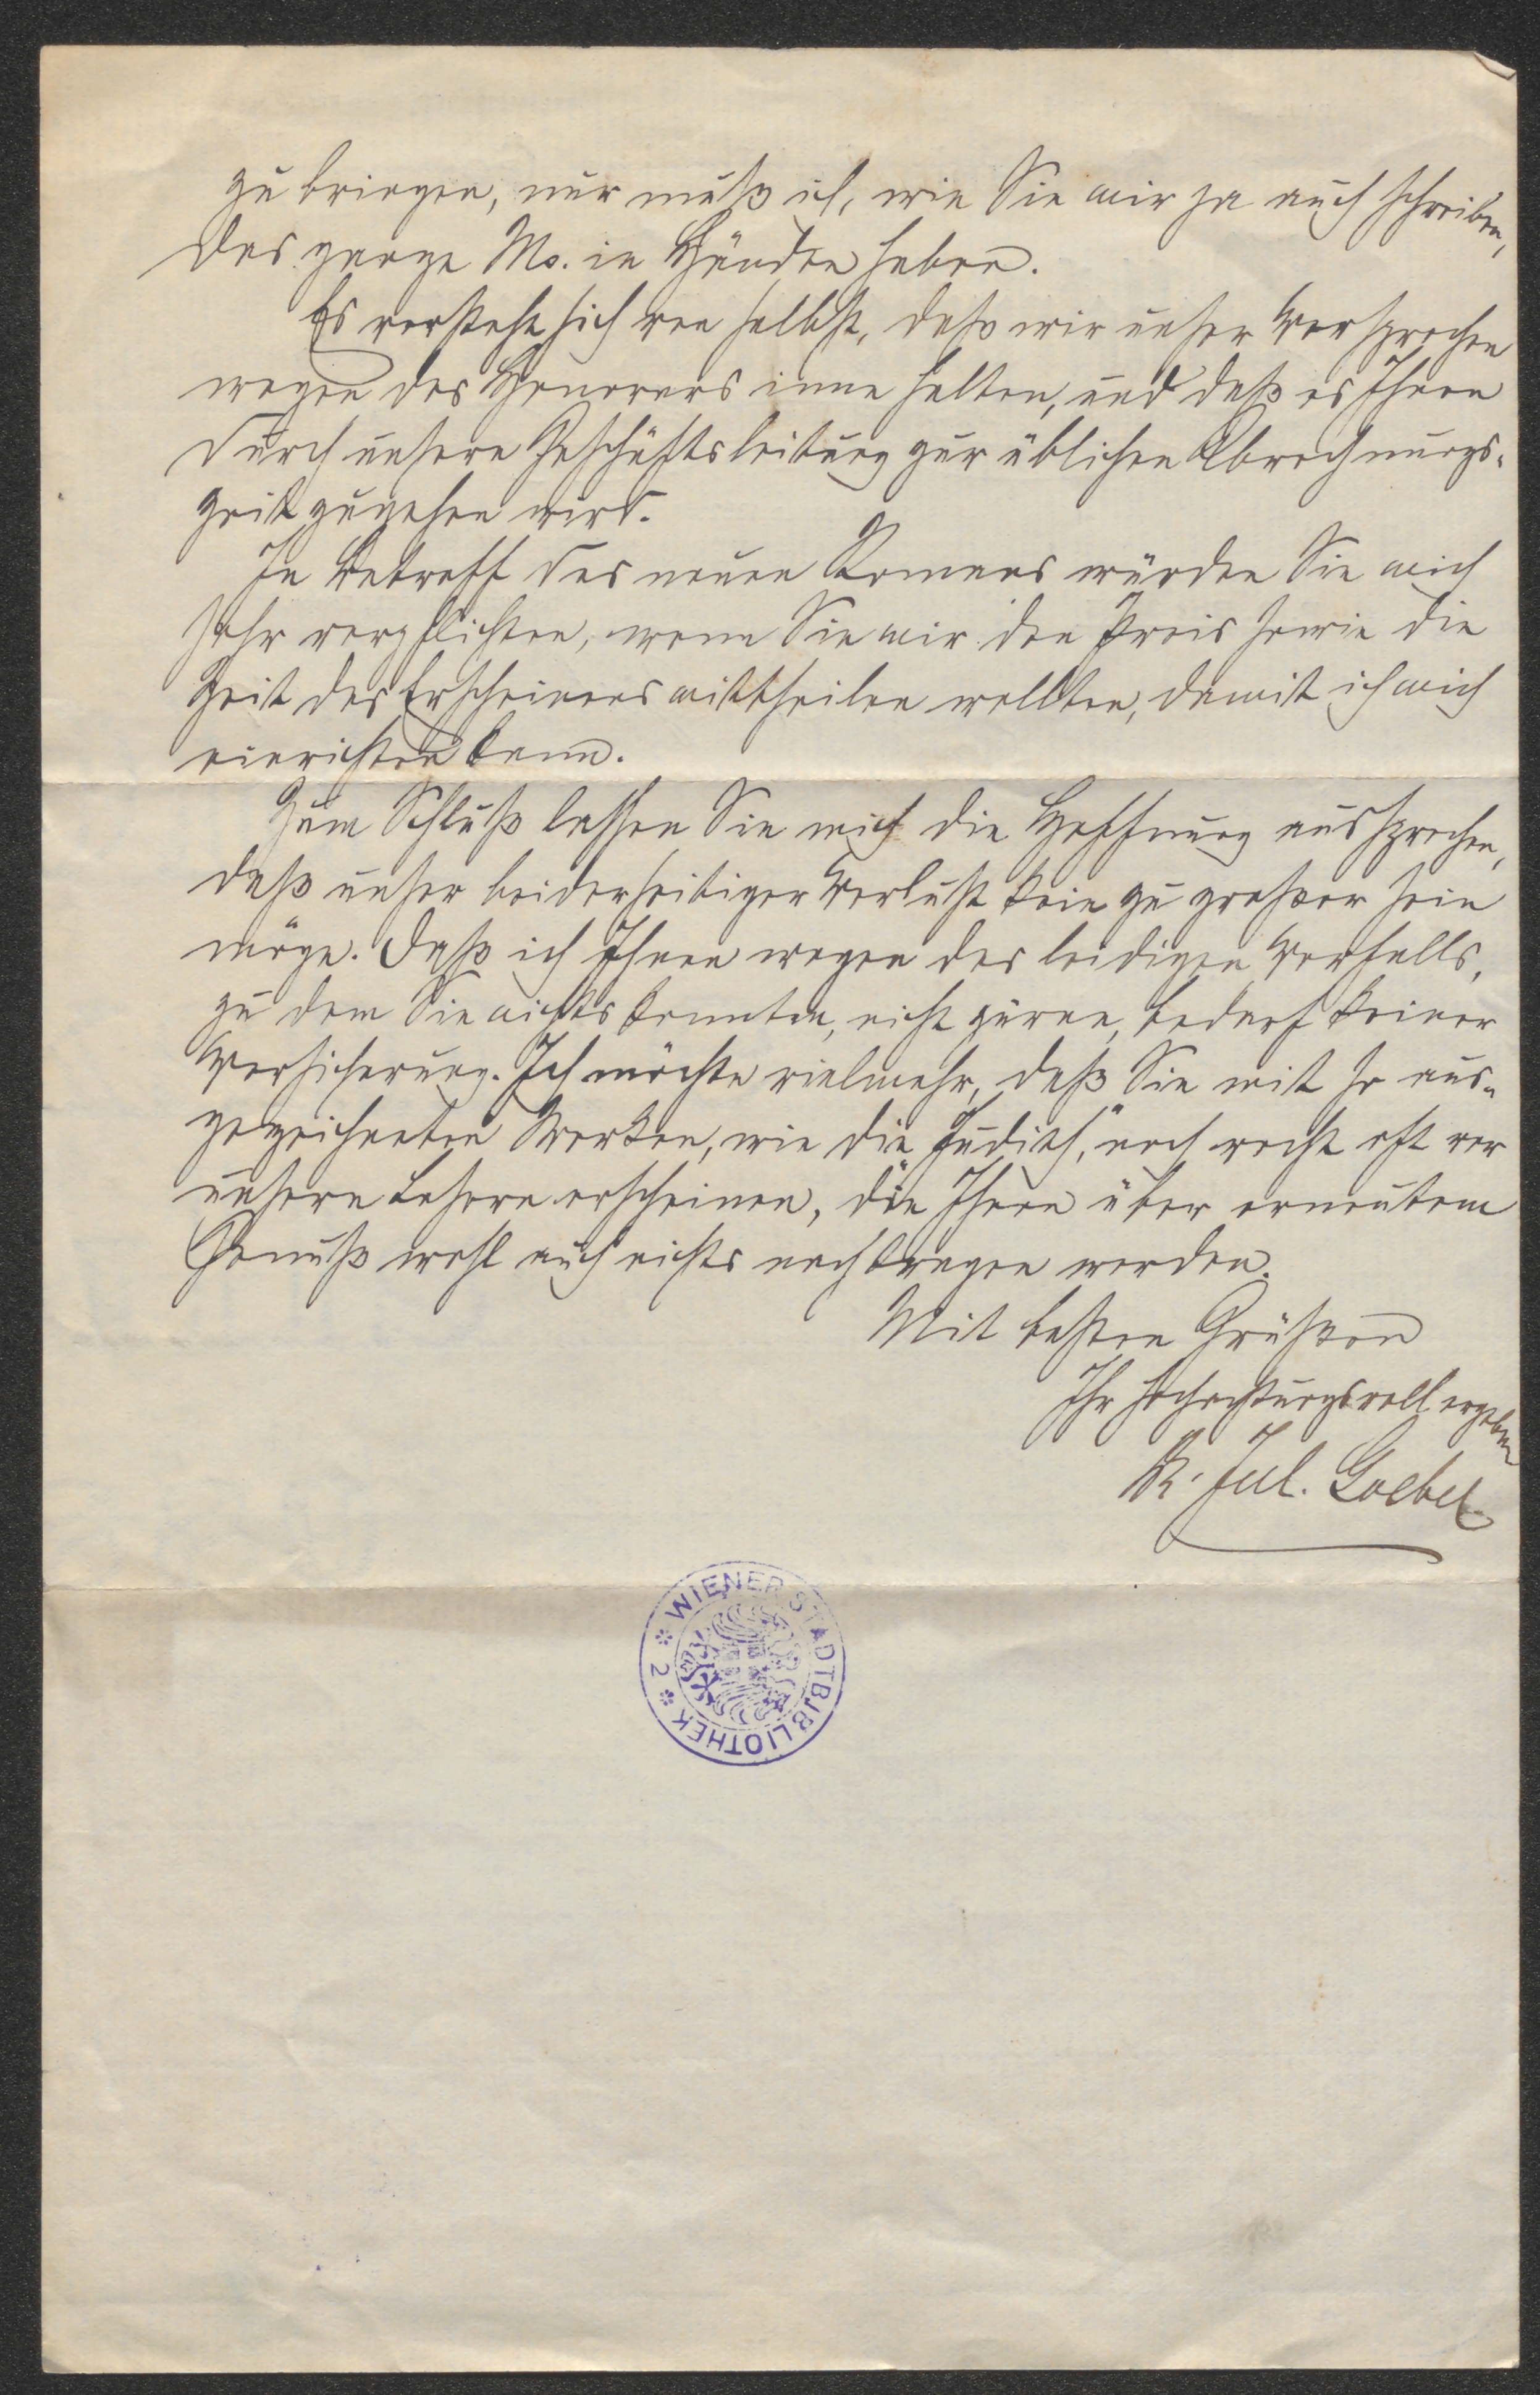 zu bringen, nur muß ich, wie Sie mir ja auch schreiben,
das ganze Ms. in Händen haben.
Es versteht sich von selbst, daß wir unser Versprechen
wegen des Honorars inne halten, und daß es Ihnen
durch unsere Geschäftsleitung zur üblichen Abrechnungs-
zeit zugehen wird.
In Betreff des neuen Romans würden Sie mich
sehr verpflichten, wenn Sie mir den Preis sowie die
Zeit des Erscheinens mittheilen wollten, damit ich mich
einrichten kann.
Zum Schluß lassen Sie mich die Hoffnung aussprechen,
daß unser beiderseitiger Verlust kein zu großer sein
möge. Daß ich Ihnen wegen des leidigen Vorfalls,
zu dem Sie nichts konnten, nicht zürne, bedarf keiner
Versicherung. Ich möchte vielmehr, daß Sie mit so aus-
gezeichneten Werken, wie die „Judith", noch recht oft vor
unsern Lesern erscheinen, die Ihnen über erneutem
Genuß wohl auch nichts nachtragen werden.
Mit besten Grüßen
Ihr hochachtungsvoll ergeben
R. Jul. Goebel
WIENER STADTBIBLIOTHEK * 2 *